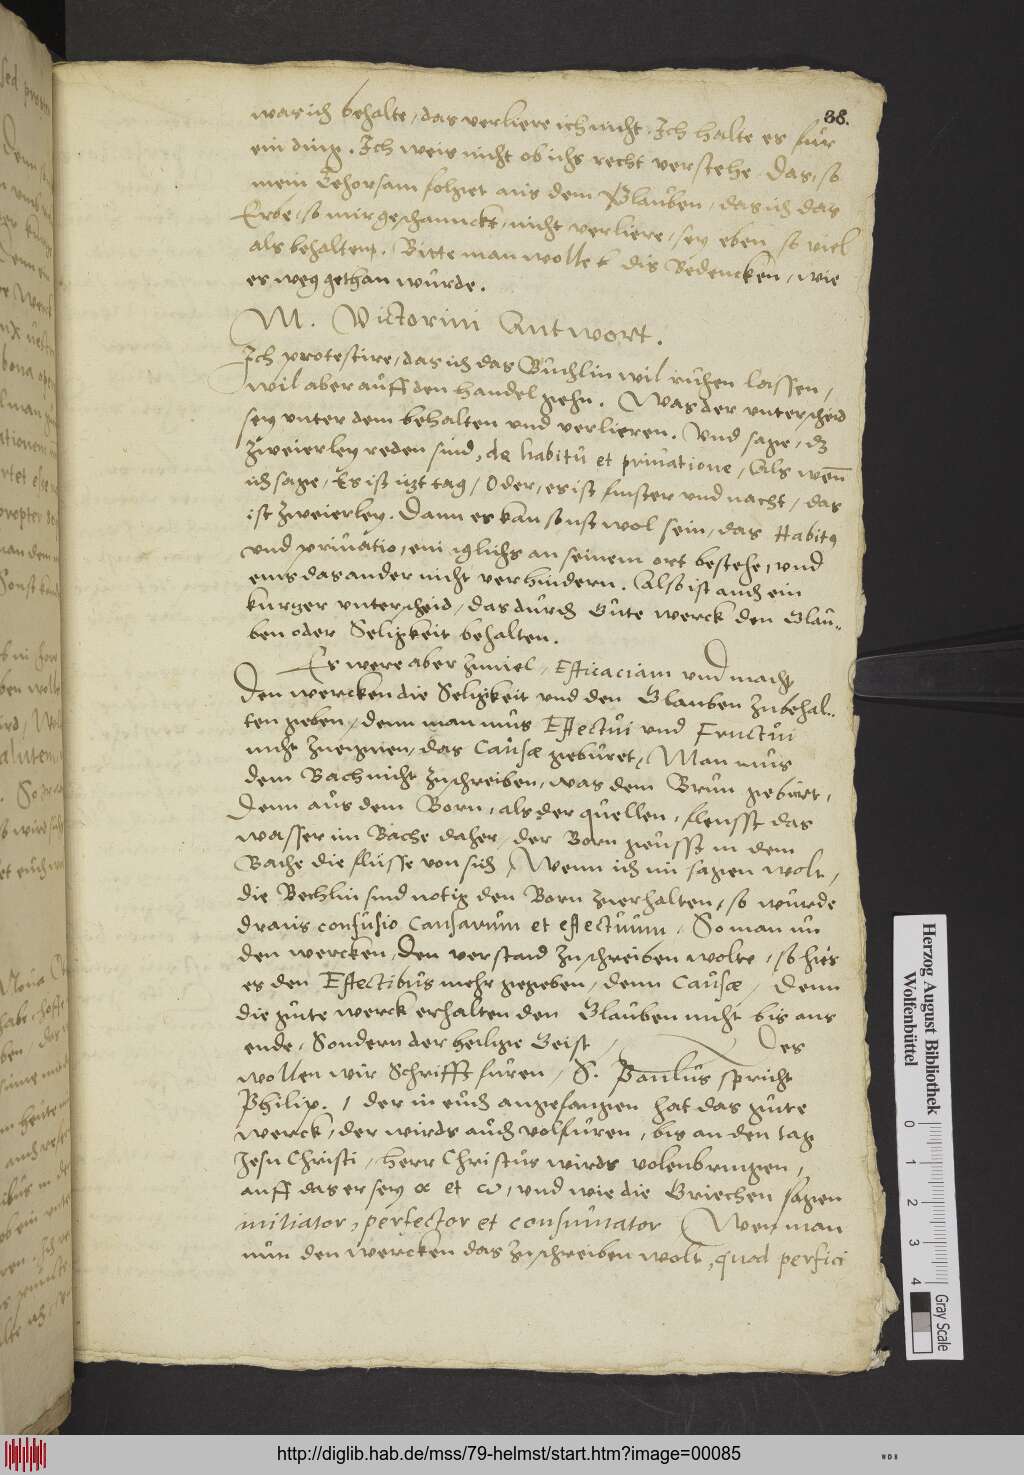 38.
was ich behalte, das verliere ich nicht, Ich halte es fur
ein ding. Ich weis nicht ob ichs recht verstehe, Das, so
mein Gehorsam folget aus dem Glauben, das ich das
Erbe, so mir geschennckt, nicht verliere, sey eben so viel
als behalten. Bitte man wolle dis Bedencken, wie
es weg gethan wurde.
M. Victorini Antwort.
Ich protestire, das ich das Buchlin wil ruhen lassen,
wil aber auff den handel gehn. Was der unterscheid
sey unter dem behalten und verlieren. Und sage, dz
zweierley reden sind, de habitu et privatione, Als wen
ich sage, Es ist izt tag, Oder, es ist finster und nacht, das
ist zweierley. Dann es kan sonst wol sein, das Habitus
und privatio, ein iglichs an seinem ort bestehe, und
eins das ander nicht verhindern. Also ist auch ein
kurzer unterscheid, das durch Gute werck den Glau„
ben oder Seligkeit behalten.
Es were aber zuviel, Efficaciam und macht
Den wercken die Seligkeit und den Glauben zubehal„
ten geben, denn man mus Effectui und Fructui
nicht zueignen, das Causæ geburet, Man mus
dem Bach nicht zuschreiben, was dem Brun geburt,
Denn aus dem Born, als der quellen, fleusst das
wasser im Bache daher, der Born geusst in dem
Bache die flusse von sich, Wenn ich nu sagen wolt,
die Bechlin sind notig den Born zuerhalten, so wurde
draus confusio Causarum et effectuum. So man nu
den wercken, den verstand zuschreiben wolte, so hies
es den Effectibus mehr gegeben, denn Causæ, Denn
die gute werck erhalten den Glauben nicht bis ans
ende, Sondern der heilige Geist, Des
wollen wir Schrifft furen, S. Paulus spricht
Philip. 1 der in euch angefangen hat das gute
werck, der wirds auch volfuren, bis an den tag
Jesu Christi, Herr Christus wirds volenbringen,
auff das er sey α et ω, und wie die Griechen sagen
initiator, perfector et consumator Wen man
nun den wercken das zuschreiben wolt, quod perfici
Herzog August Bibliothek
Wolfenbüttel
0 1 2 3 4
Gray Scale
http://diglib.hab.de/mss/79-helmst/start.htm?image=00085